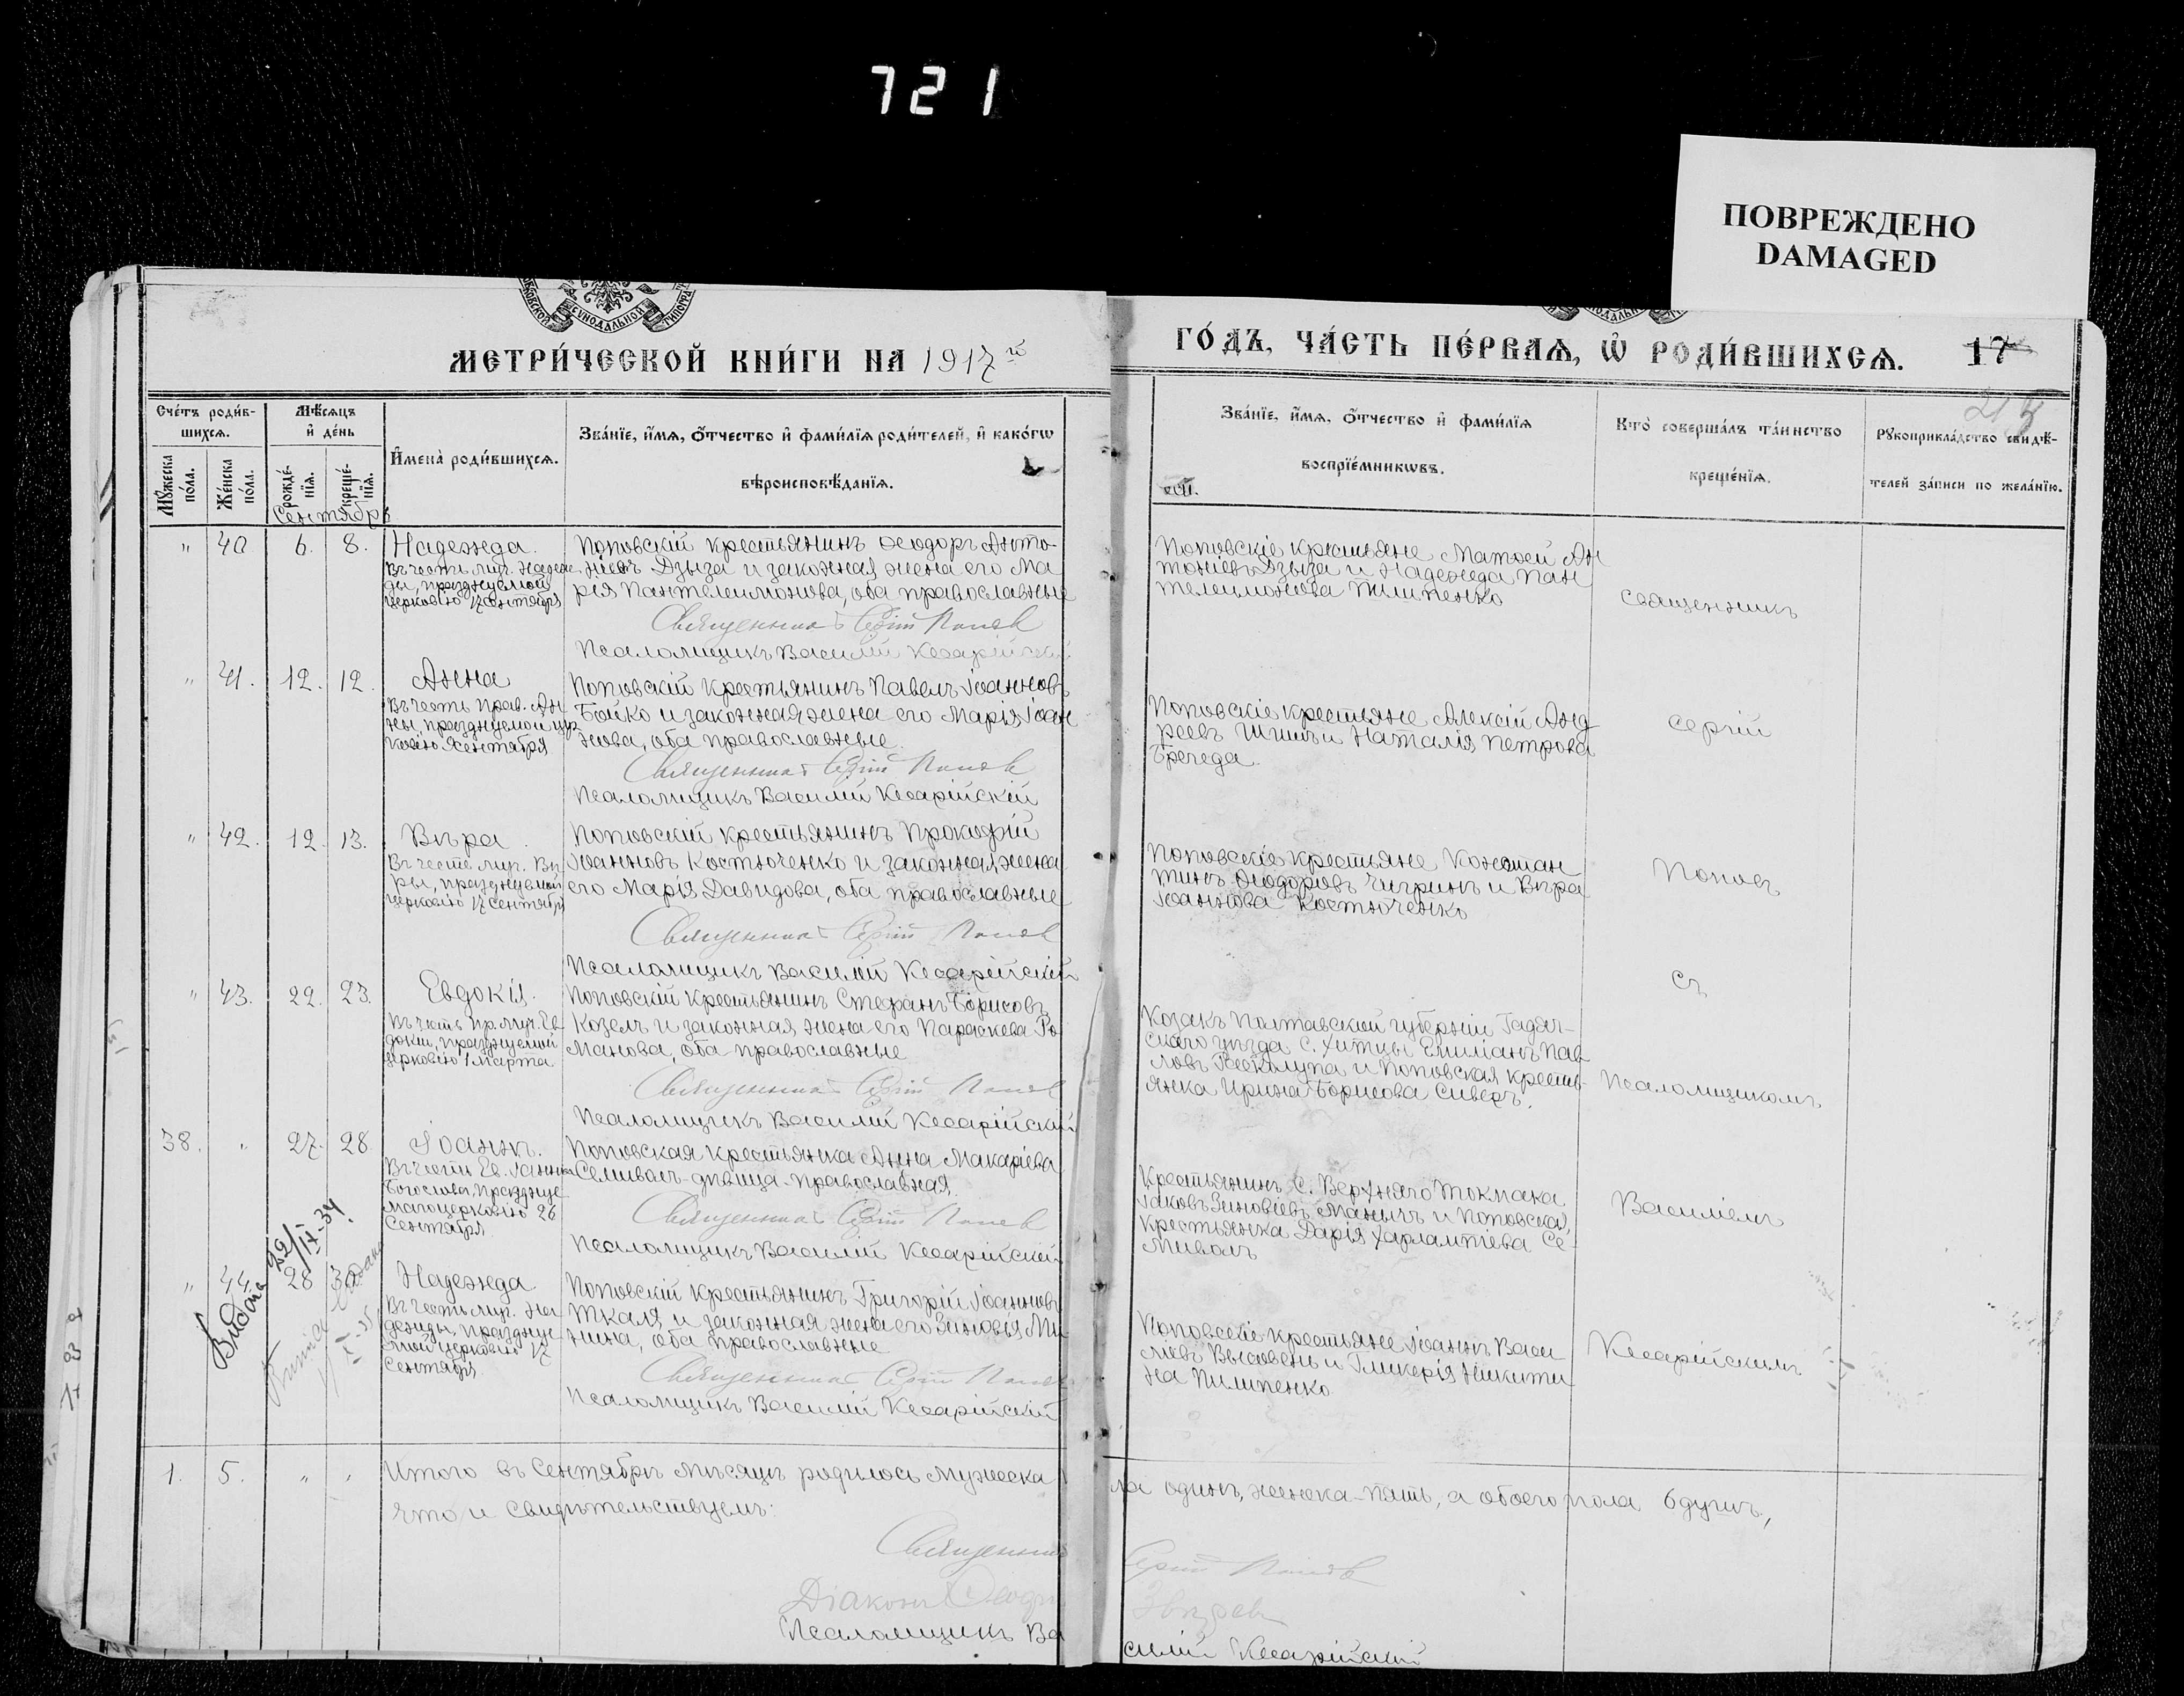 721
ПОВРЕЖДЕНО
DAMAGED
МЕТРИ́ЧЕСКОЙ КНИ́ГИ НА 1917й
ГО́ДЪ, ЧА́СТЬ ПЕ́РВАѦ, Ѡ҆ РОДИ́ВШИХСѦ.
17
Сче́тъ роди́в-
шихся.
Мѣ́сяцъ
и҆ де́нь
Му́жеска по́ла.
Же́нска по́ла.
рожде́-
нїѧ.
креще́-
нїѧ.
Сентябрь
И҆мена̀ роди́вшихся.
Зва́нїе, и҆́мѧ, ѻ҆́тчество и҆ фами́лїѧ роди́телей, и҆ како́гѡ
вѣроисповѣ́данїѧ.
Зва́нїе, и҆́мѧ, ѻ҆́тчество и҆ фами́лїѧ
воспрїе́мникѡвъ.
Кто̀ соверша́лъ та́инство
креще́нїѧ.
Рукоприкла́дство свидѣ́-
телей за́писи по жела́нїю.
" 40 6. 8. Надежда.
Въ честь муч. Надеж
ды, празднуемой
церковію 17 сентября
Поповскій крестьянинъ Ѳеодоръ Анто-
ніевъ Дзыза и законная жена его Ма
рія Пантелеимонова, оба православные
Священникъ Сергій Поповъ
Псаломщикъ Василій Кесарійскій
Поповскіе крестьяне Матѳей Ан
тоніевъ Дзыза и Надежда Пан
телеимонова Пилипенко
Священникъ
" 41. 12. 12. Анна
Въ честь прав. Ан
ны, празднуемой цер
ковію 9 сентября
Поповскій крестьянинъ Павелъ Іоанновъ
Бойко и законная жена его Марія Іоан
нова, оба православные.
Священникъ Сергій Поповъ
Псаломщикъ Василій Кесарійскій
Поповскіе крестьяне Алексій Анд
реевъ Шишъ и Наталія Петрова
Бречеда.
Сергій
" 42. 12. 13. Вѣра.
Въ честь муч. Вѣ
ры, празднуемой
церковію 17 сентября
Поповскій крестьянинъ Прокофій
Іоанновъ Костюченко и законная жена
его Марія Давидова, оба православные
Священникъ Сергій Поповъ
Псаломщикъ Василій Кесарійскій
Поповскіе крестьяне Констан
тинъ Ѳеодоровъ Чигринъ и Вѣра
Іоаннова Костюченко
Поповъ
съ
" 43. 22. 23. Евдокія.
Въ честь пр. муч. Ев
докіи, празднуемой
церковію 1 марта
Поповскій крестьянинъ Стефанъ Борисовъ
Козелъ и законная жена его Параскева Ро
манова, оба православные
Священникъ Сергій Поповъ
Псаломщикъ Василій Кесарійскій
Козакъ Полтавской губерніи Гадяч-
скаго уѣзда с. Хитцы Емиліанъ Пав
ловъ и Поповская кресть-
янка Ирина Борисова Сиверъ.
Псаломщикомъ
38. " 27. 28. Іоаннъ.
Въ честь Ев. Іоанна
Богослова, праздуе
маго церковію 26
Сентября.
Поповская крестьянка Анна Макаріева
Семиволъ-дѣвица-православная.
Священникъ Сергій Поповъ
Псаломщикъ Василій Кесарійскій
Крестьянинъ с. Верхняго Токмака
Іаковъ Зиновіевъ Манычъ и Поповская
Крестьянка Дарія Харлампіева Се-
миволъ
Василіемъ
" 44. 28 30 Надежда.
Въ честь муч. На
дежды, празднуе
мой церковію 17
Сентября.
Поповскій крестьянинъ Григорій Іоанновъ
Ткаля и законная жена его Зиновія Ми
нина, оба православные
Священникъ Сергій Поповъ
Псаломщикъ Василій Кесарійскій
Поповскіе крестьяне Іоаннъ Васи
ліевъ Высовень и Гликерія Никити
на Пилипенко
Кесарійскимъ
Видана 22/IX-34.
1. 5. " " Итого въ Сентябрѣ мѣсяцѣ родилось мужеска
ла одинъ, женска-пять, а обоего пола 6 душъ,
что и свидѣтельствуемъ:
Священникъ Сергій Поповъ
Діаконъ Ѳеодоръ Звѣревъ
Псаломщикъ Василій Кесарійскій